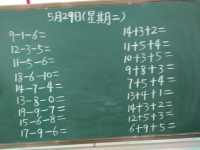 5月29日(星期二)
9-1-6=
12-3-5=
11-5-6=
18-6-10=
14-7-4=
13-8-0=
19-9-7=
15-6-8=
17-9-6=
14+3+2=
11+5+4=
10+3+5=
9+8+3=
7+5+4=
13+4+1=
14+3+2=
12+5+3=
6+9+5=